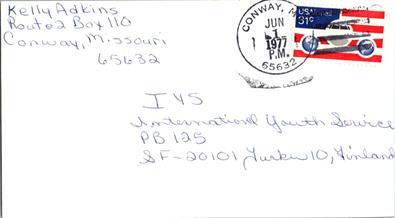 Kelly Adkins
Route 2 Box 110
Conway, Missouri
65632
CONWAY, M
JUN
1
1977
P.M.
65632
USAirmail
31c
IYS
International Youth Service
PB 125
SF-20101 Turku 10, Finland